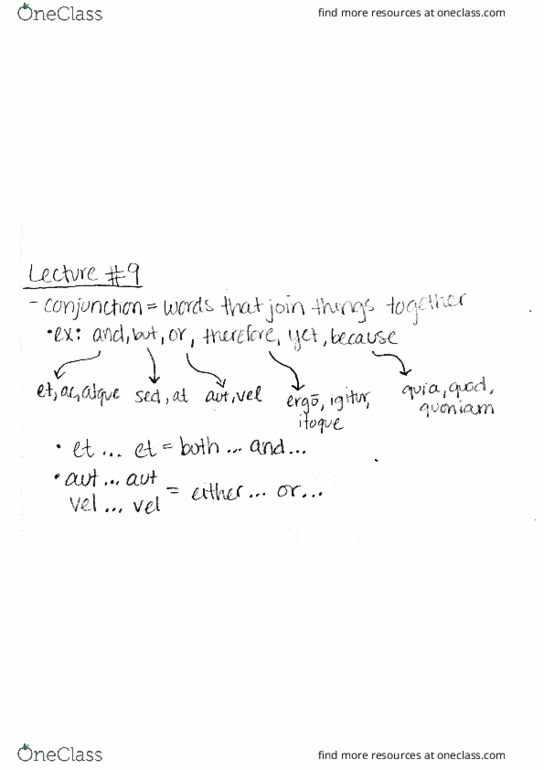 OneClass
find more resources at oneclass.com
Lecture #9
- conjunction = words that join things together
• ex: and, but, or, therefore, yet, because
et, ac, atque sed, at aut, vel ergō, igitur, itaque quia, quod, quoniam
• et ... et = both ... and ...
• aut ... aut
vel ... vel = either ... or ...
OneClass
find more resources at oneclass.com